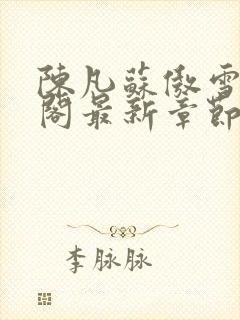 陳凡蘇傲雪
閣最新章節
李脉脉